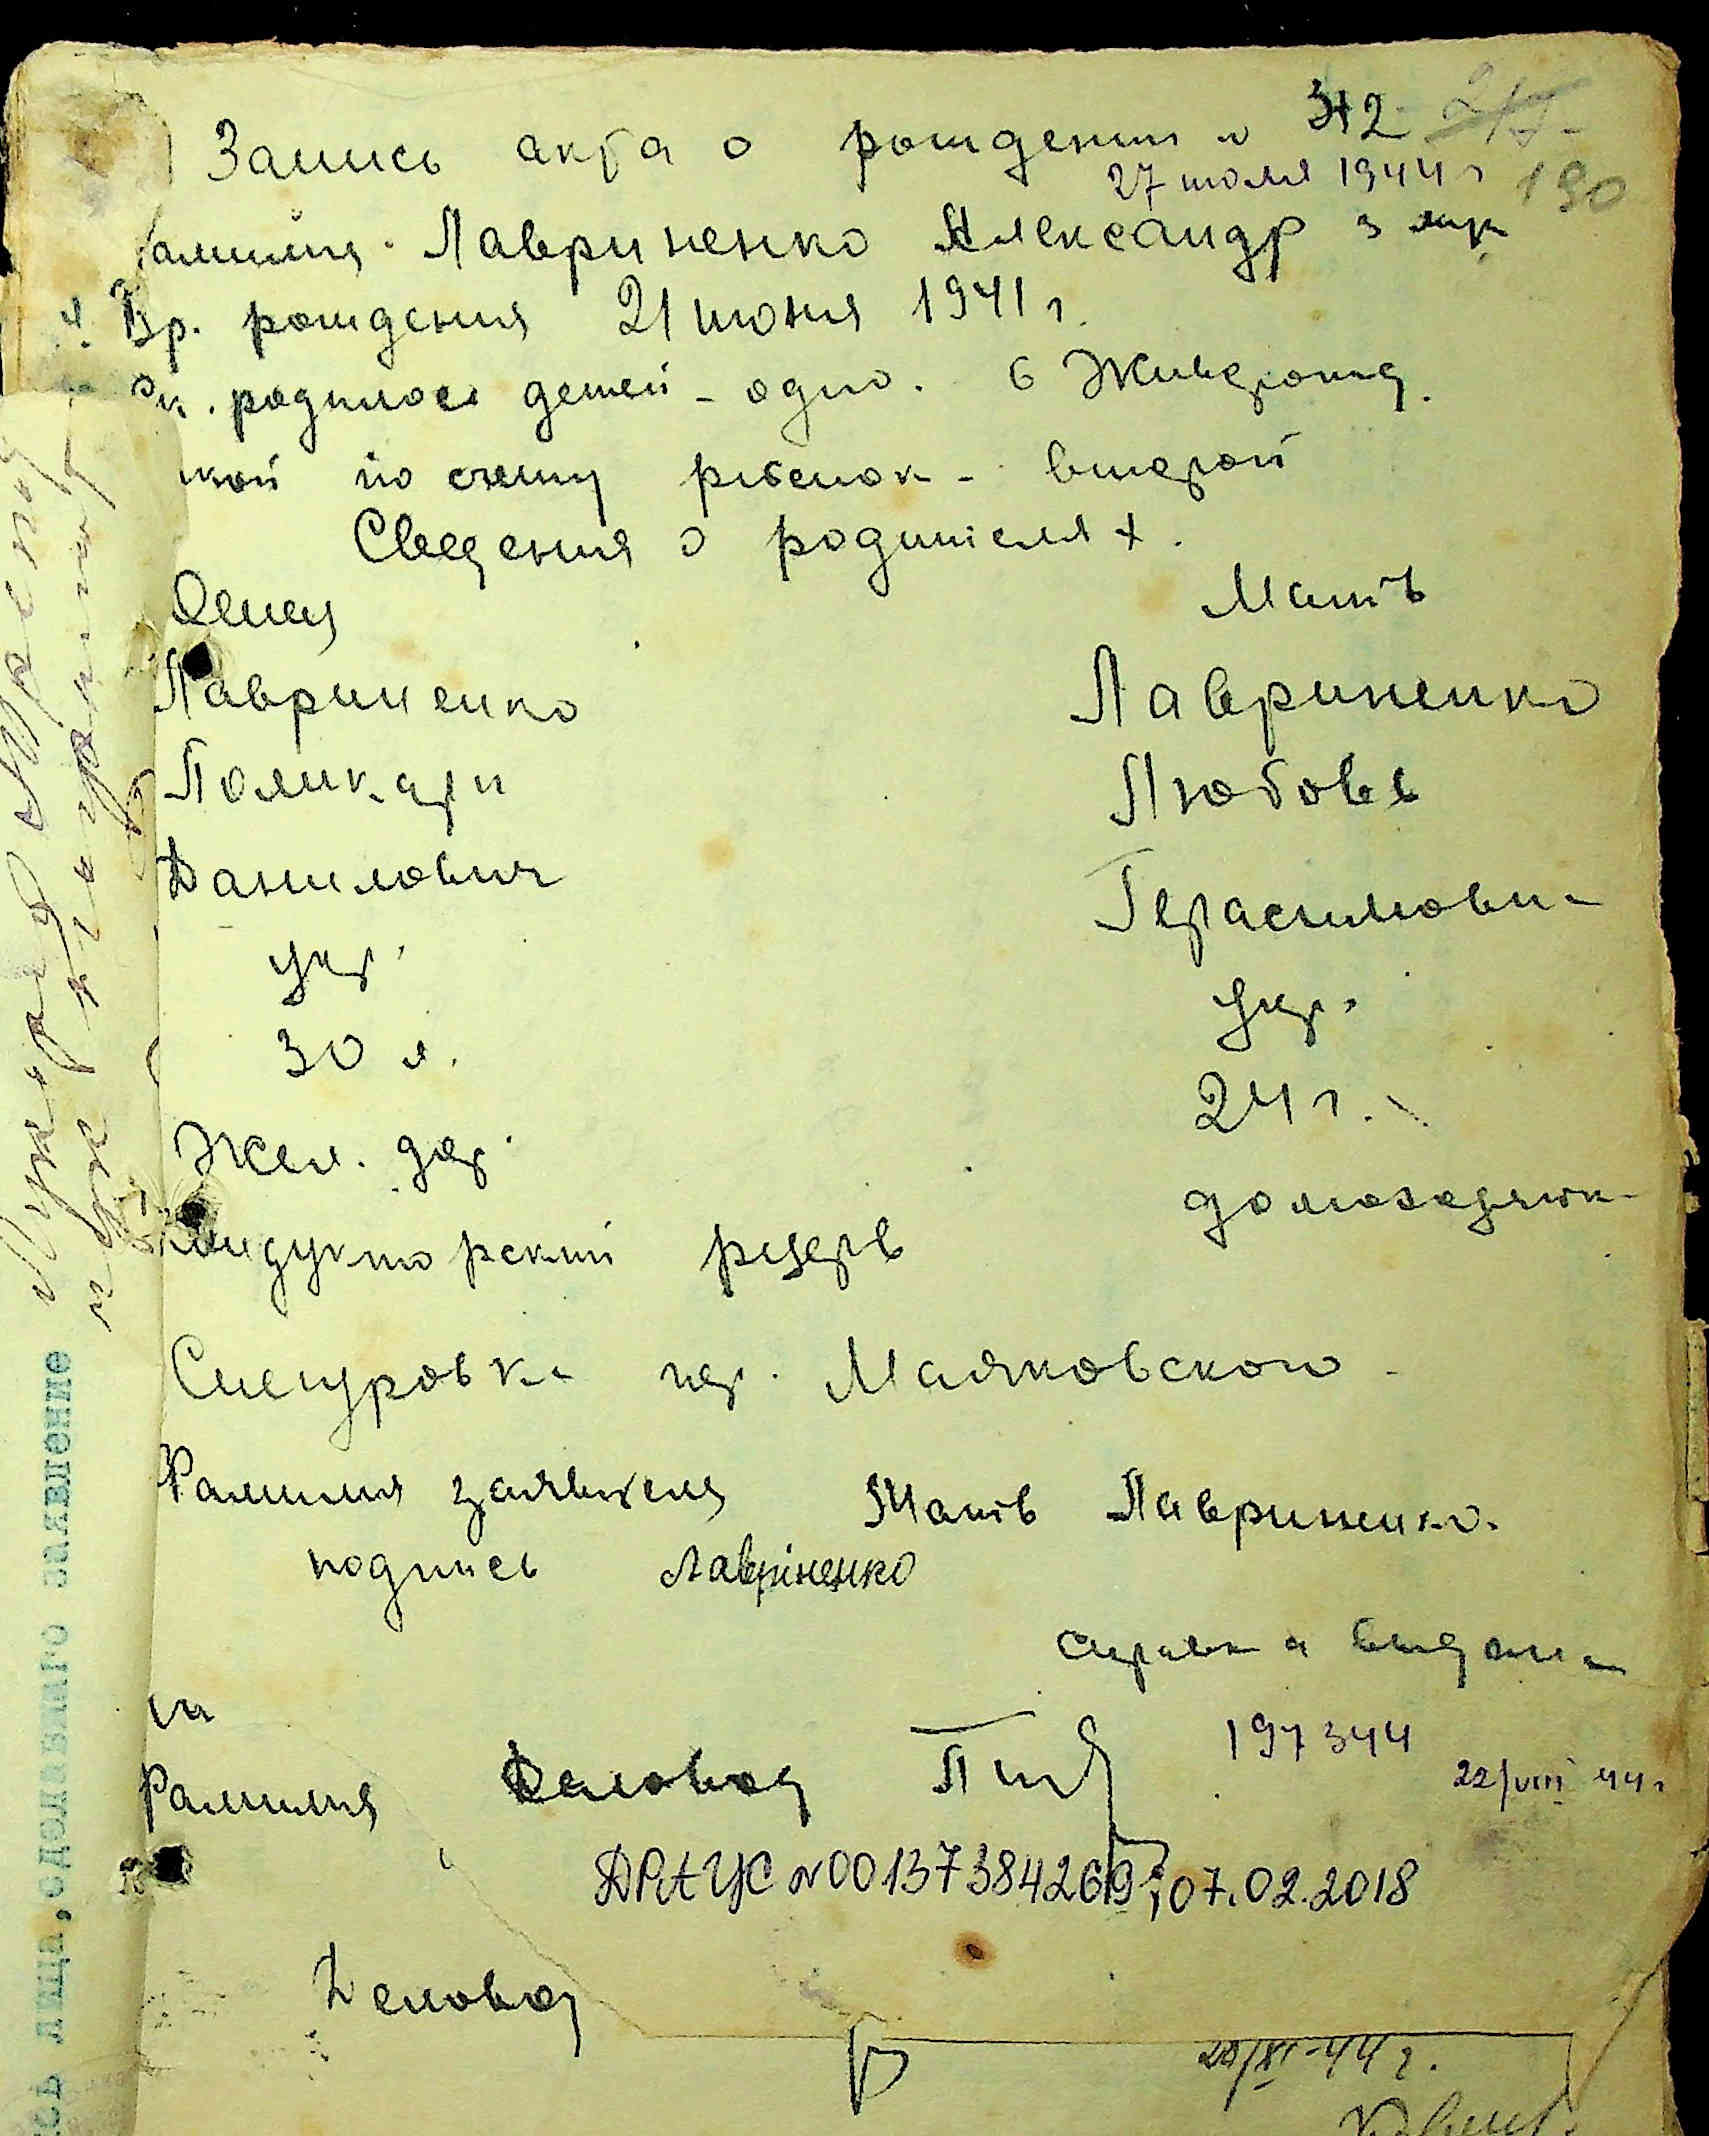 Запись акта о рождении № 312
27 июля 1944 г 190
амилия. Лавриненко Александр
Вр. рождения 21 июня 1941 г.
родилось детей - одно.
кой по счету ребенок - второй
Сведения о родителях.
Отец Мать
Лавриненко Лавриненко
Поликарп Любовь
Данилович Герасимовн
укр. укр.
30 л. 24 г.
Жел. дор. домохозяйк
Кондукторский резерв
Снегуровка пер. Маяковского
Фамилия заявителя Мать Лавриненко.
подпись Лавріненко
справка выдана
197344
22/VIII 44 г
Фамилия Деловод
ДРАЦС №00137384269; 07.02.2018
Деловод
20/XI-44 г.
лица, сделавшаго заявление